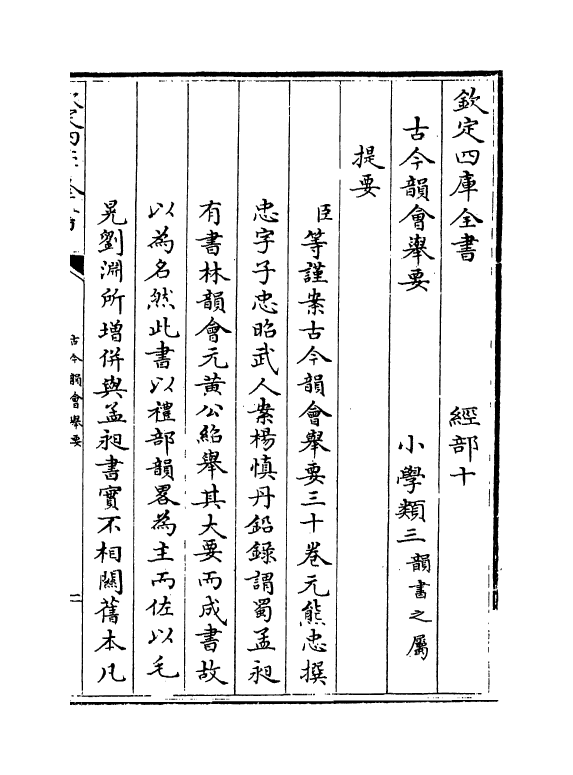 欽定四庫全書　經部十
古今韻會舉要　小學類三韻書之屬
提要
臣等謹案古今韻會舉要三十卷元熊忠撰
忠字子忠昭武人案楊慎丹鉛錄謂蜀孟昶
有書林韻會元黄公紹舉其大要而成書故
以為名然此書以禮部韻畧為主而佐以毛
晃劉淵所增併與孟昶書實不相關舊本凡
欽定四庫全書
古今韻會舉要